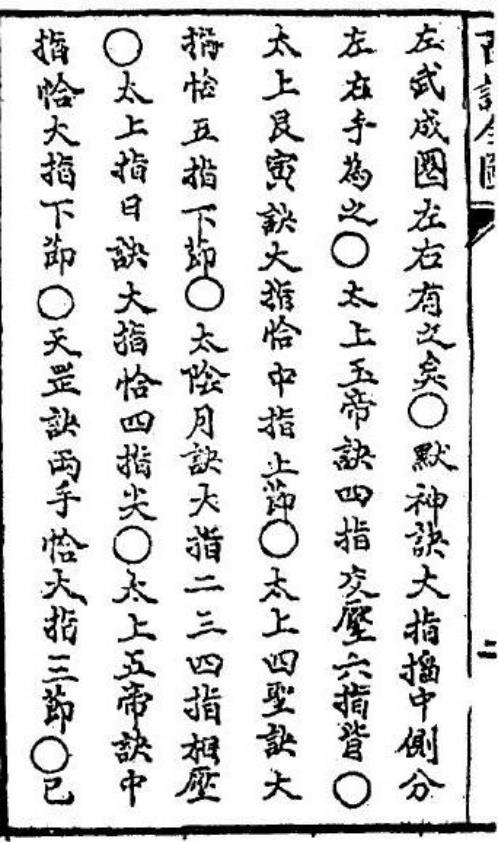 百訣全圖
二
左武成圏左右有之矣○默神訣大指搯中側分
左右手為之○太上玉帝訣四指交壓六指背○
太上艮寅訣大指恰中指上節○太上四聖訣大
指恰五指下節○太陰月訣大指二三四指相壓
○太上指日訣大指恰四指尖○太上五帝訣中
指恰大指下節○天罡訣両手恰大指三節○已